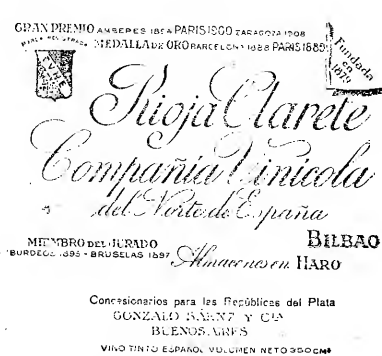 GRAN PREMIO AMBERES 1884 PARIS 1900 ZARAGOZA 1908
MARCA REGISTRADA
MEDALLA DE ORO BARCELONA 1888 PARIS 1889
CVNE
Fundada en 1879
Rioja Clarete
Compañia Vinicola
del Norte de España
BILBAO
MIEMBRO DEL JURADO
BURDEOS 1895 - BRUSELAS 1897
Almacenes en HARO
Concesionarios para las Repúblicas del Plata
GONZALO SÁENZ Y CIA
BUENOS AIRES
VINO TINTO ESPAÑOL VOLUMEN NETO 350 CM³